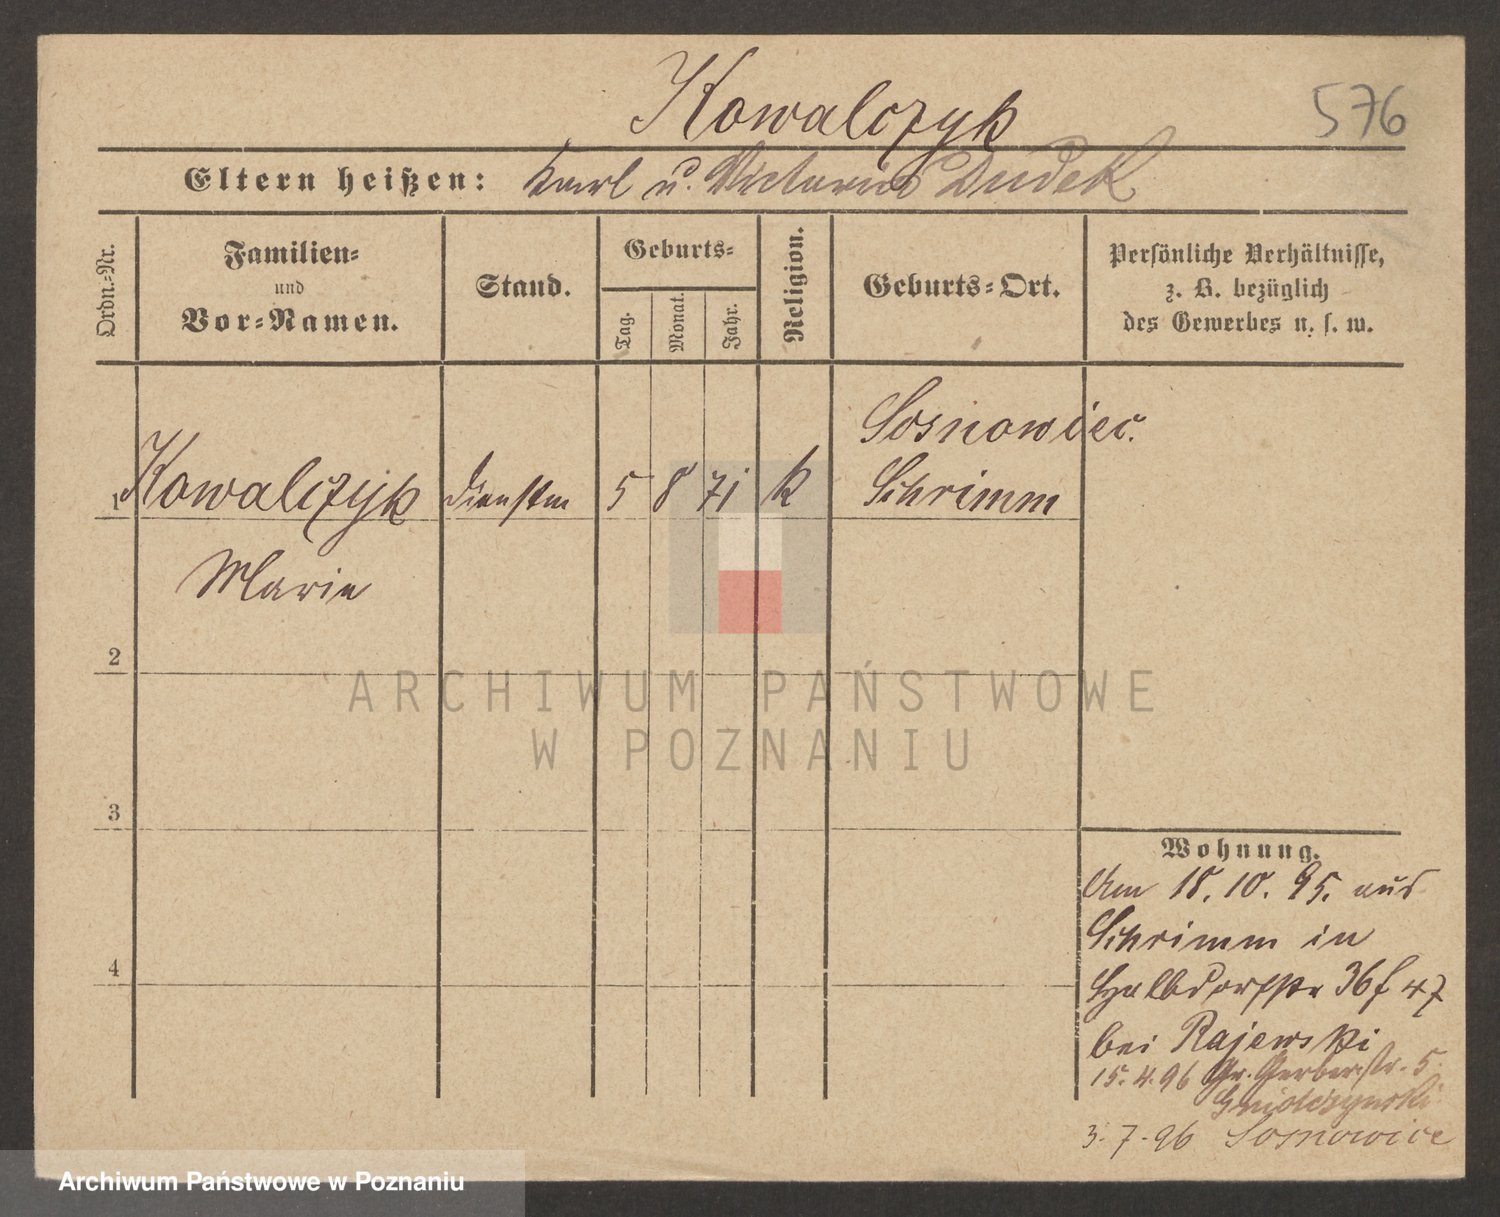 Kowalczyk
576
Eltern heißen: Karl u. Victoria Dudek
Ordn.-Nr.
Familien-
und
Vor-Namen.
Stand.
Geburts-
Tag.
Monat.
Jahr.
Religion.
Geburts-Ort.
Persönliche Verhältnisse,
z. B. bezüglich
des Gewerbes u. s. w.
Sosnowiec.
1 Kowalczyk 5 8 71 k Schrimm
Marie
2
3
4
Wohnung.
Am 18. 10. 95. aus
Schrimm in
Halbdorfstr 36
bei Rajewski
15. 4. 96 Gr. Gerberstr. 5
3. 7. 96 Sosnowice
ARCHIWUM PAŃSTWOWE
W POZNANIU
Archiwum Państwowe w Poznaniu